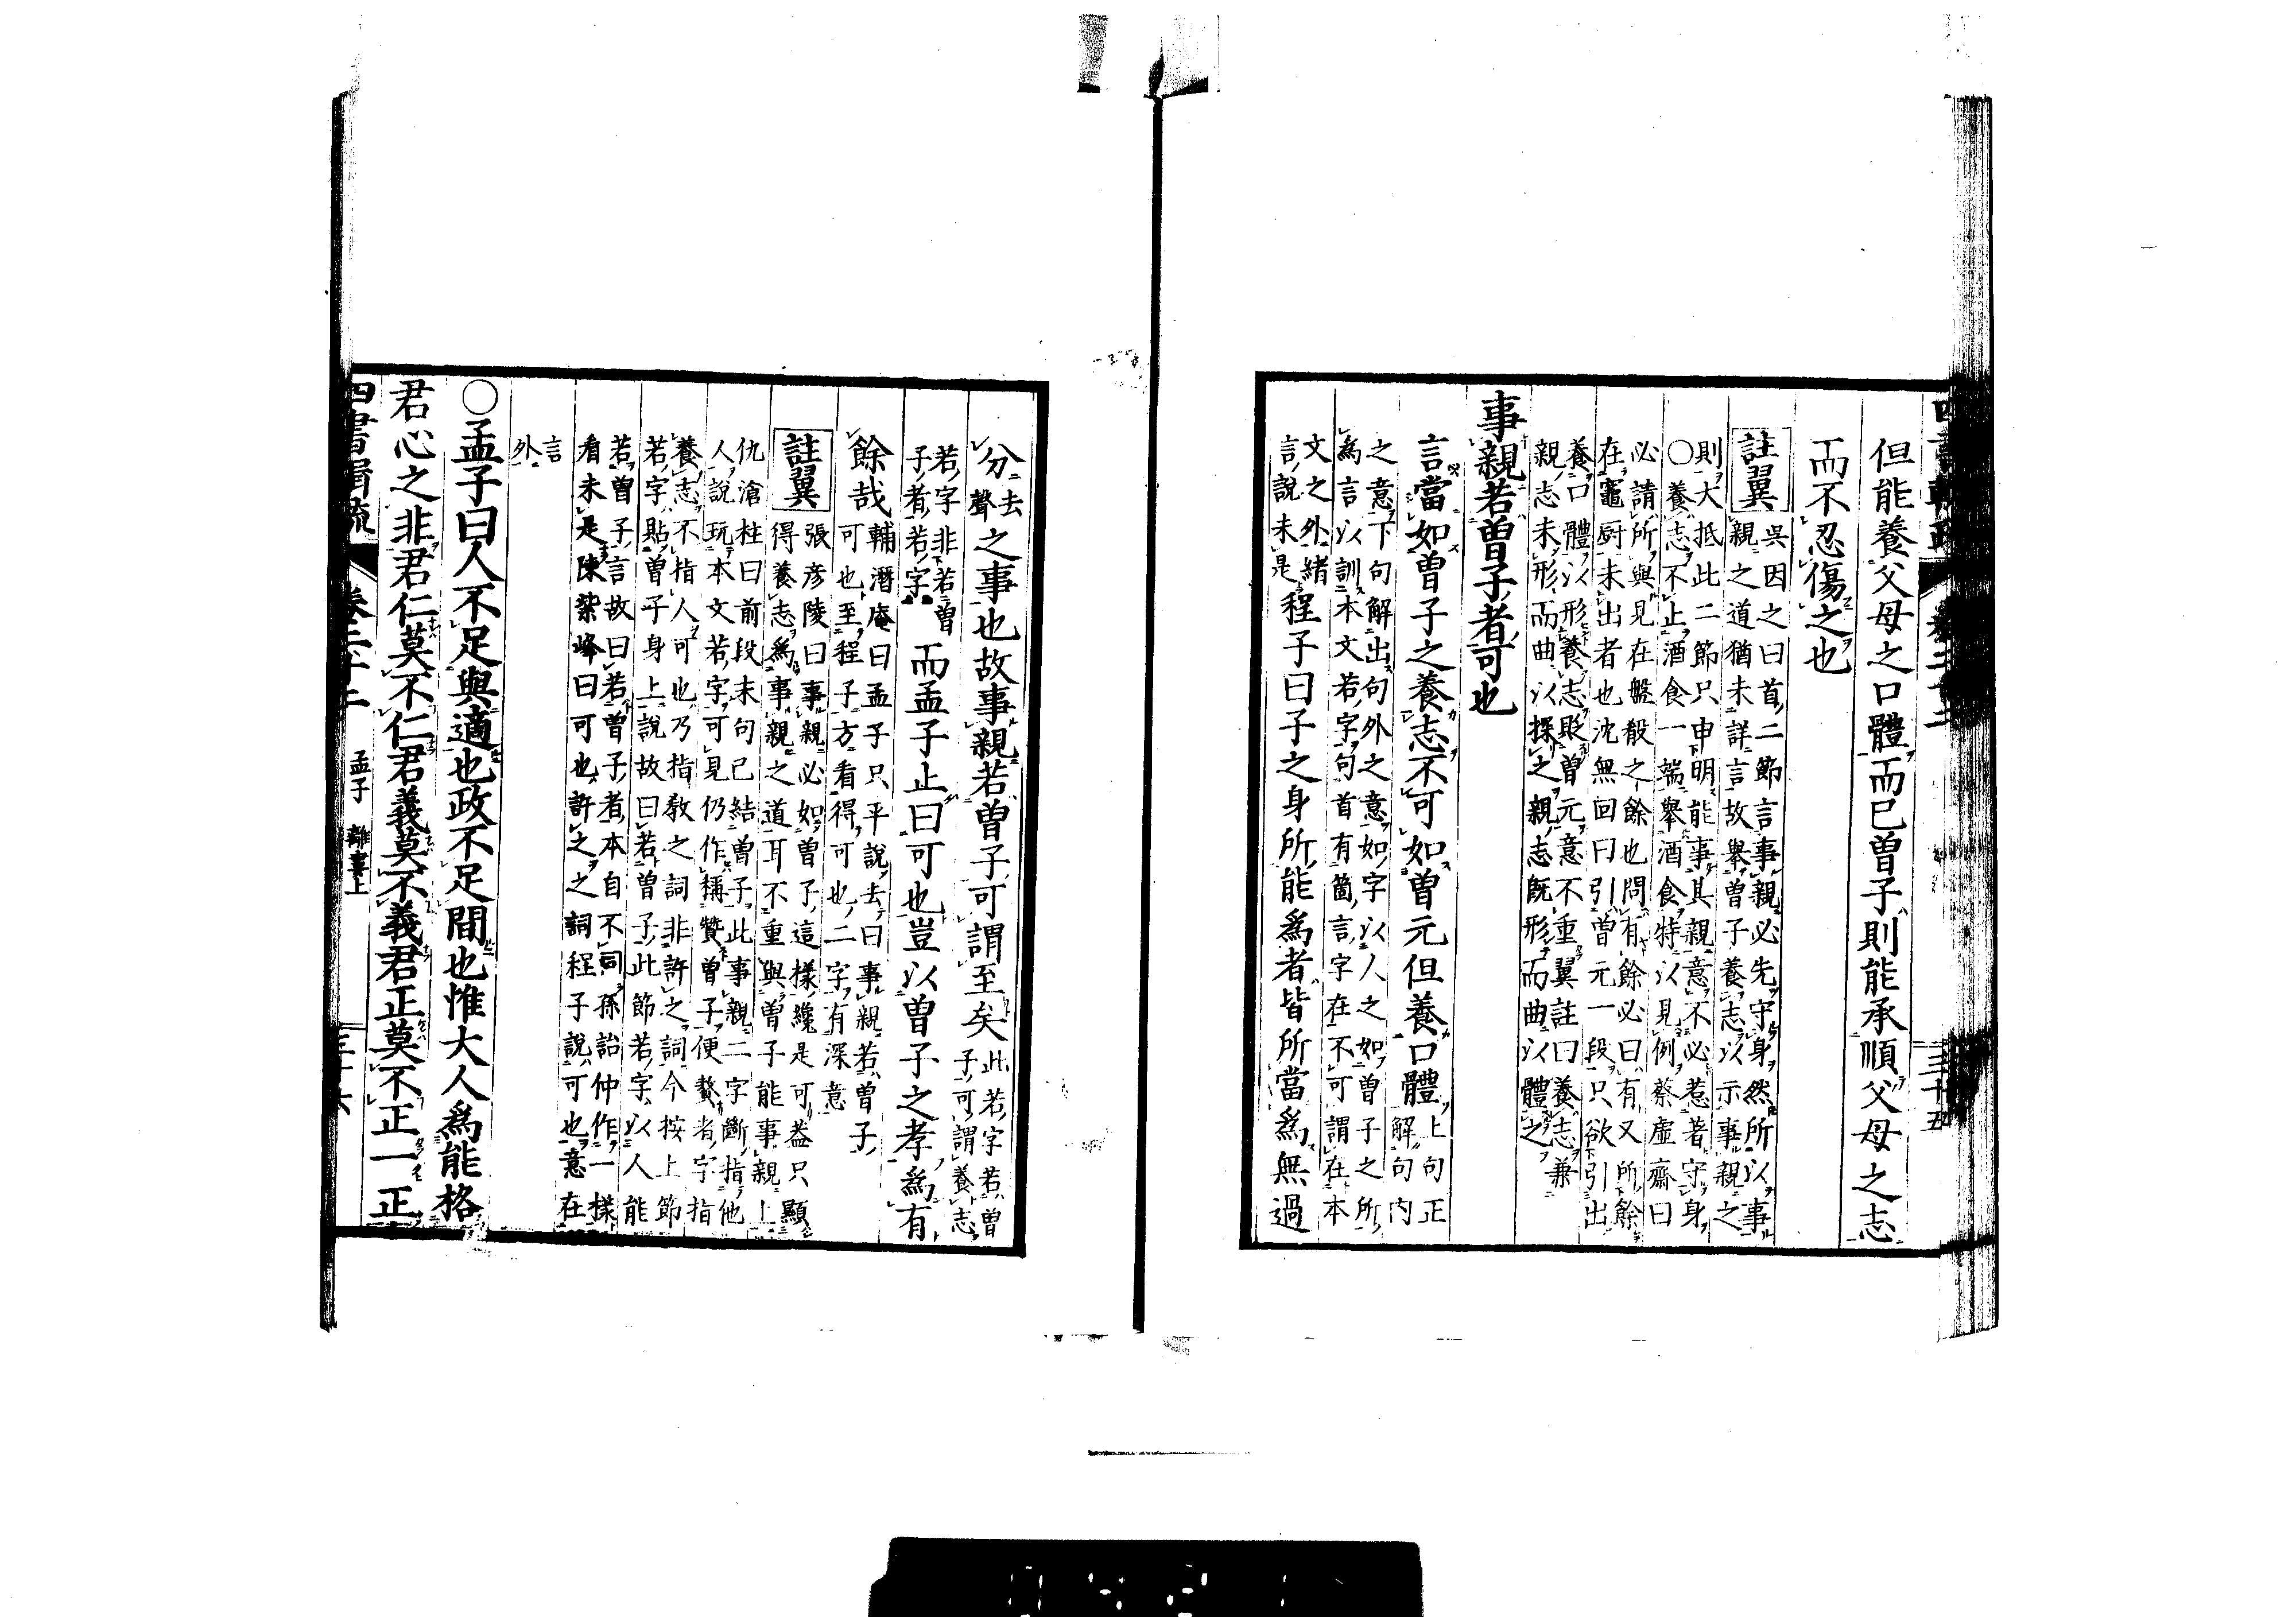 但能養父母之口體而已曽子則能承順父母之志
而不忍傷之也
註翼
吳因之曰首二節言事親必先守身然所以事
親之道猶未詳言故舉曽子養志以示事親之
則大抵此二節只申明能事其親意不必惹著守身
○養志不止酒食一端舉酒食特以見例蔡虛齋曰
必請所與見在盤殽之餘也問有餘必曰有又所餘
在竈厨未出者也沈無回曰引曽元一段只欲引出
養口體以形養志貶曽元意不重翼註曰養志兼
親志未形而曲以探之親志既形而曲以體之
事親若曽子者可也
言當如曽子之養志不可如曽元但養口體
上句正
解句内
之意下句解出句外之意如字以人之如曽子之所
爲言以訓本文若字句首有箇言字在不可謂在本
文之外緒
言說未是
程子曰子之身所能爲者皆所當爲無過
分
去
聲
之事也故事親若曽子可謂至矣
此若字若曽
子可謂養志
若字非若曽
子者若字
而孟子止曰可也豈以曽子之孝爲有
餘哉
輔潛庵曰孟子只平說去曰事親若曽子
可也至程子方看得可也二字有深意
註翼
張彦陵曰事親必如曽子這樣纔是可葢只顯
得養志爲事親之道耳不重與曽子能事親上
仇滄柱曰前段末句已結曽子此事親二字斷指他
人說玩本文若字可見仍作稱贊曽子便贅者字指
養志不指人可也乃指敎之詞非許之詞今按上節
若字貼曽子身上說故曰若曽子此節若字以人能
若曽子言故曰若曽子者本自不同孫詒仲作一樣
看未是陳栥峰曰可也許之之詞程子說可也意在
言
外
○孟子曰人不足與適也政不足間也惟大人爲能格
君心之非君仁莫不仁君義莫不義君正莫不正一正
孟子
離婁上